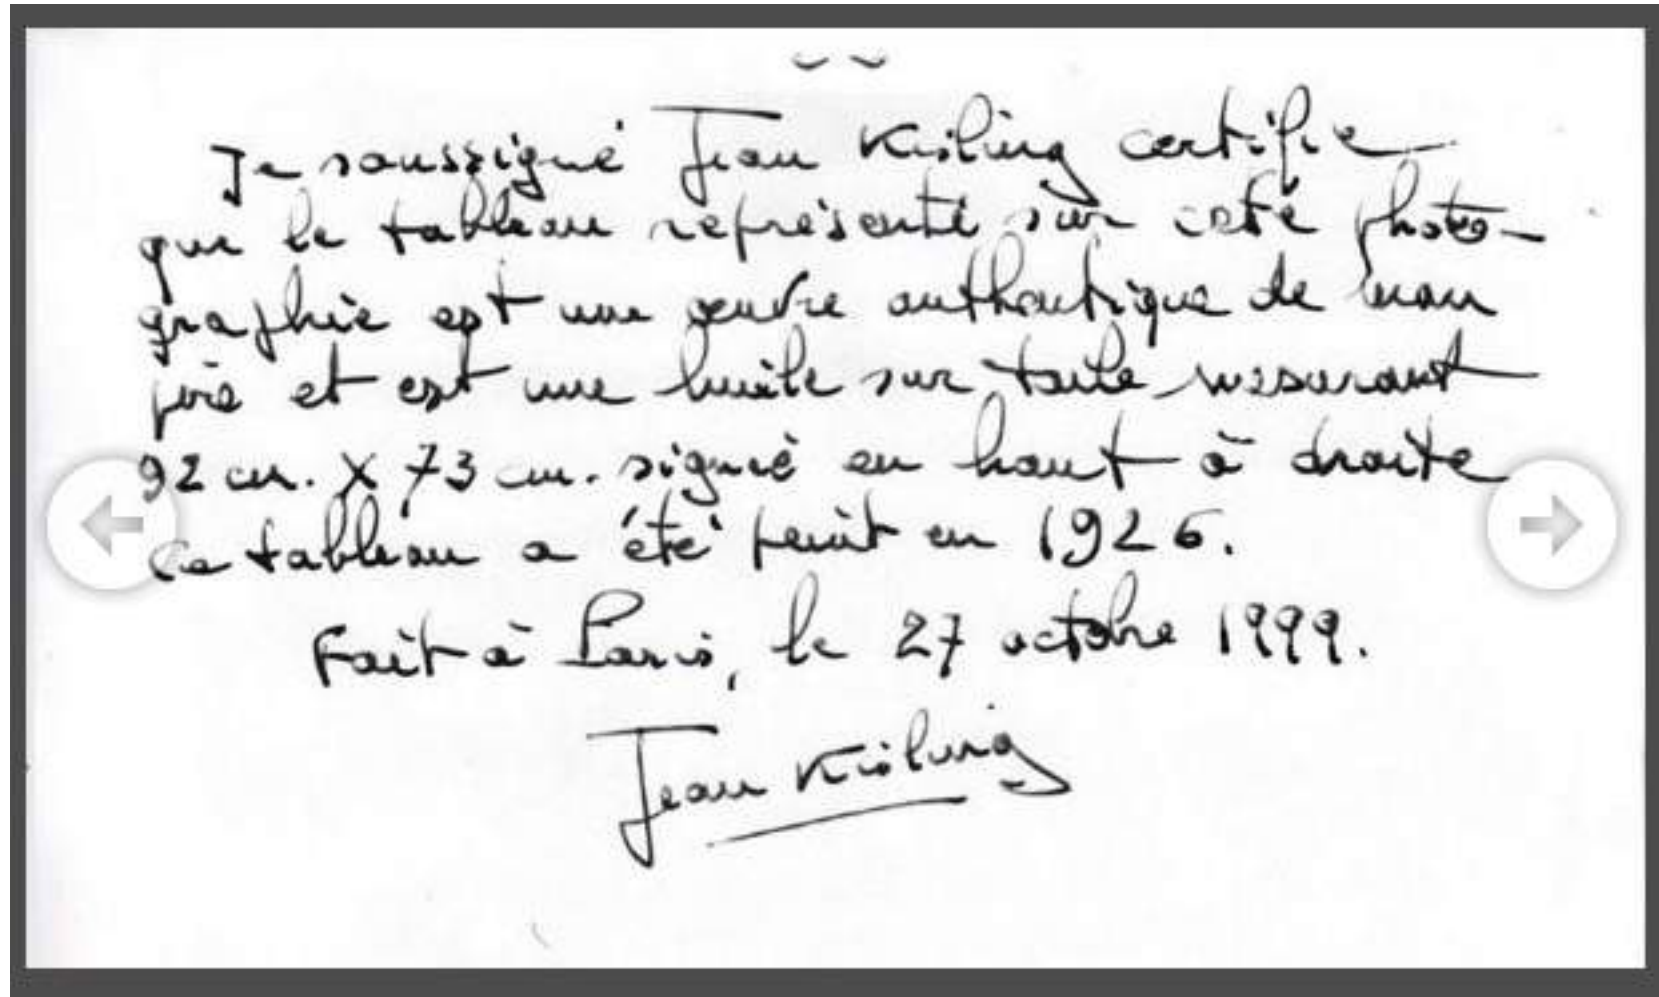 Je soussigné Jean Kisling certifie
que le tableau représenté sur cete photo-
graphie est une œuvre authentique de mon
père et est une huile sur toile mesurant
92 cm. X 73 cm. signé en haut à droite
Ce tableau a été peint en 1926.
Fait à Paris, le 27 octobre 1999.
Jean Kisling